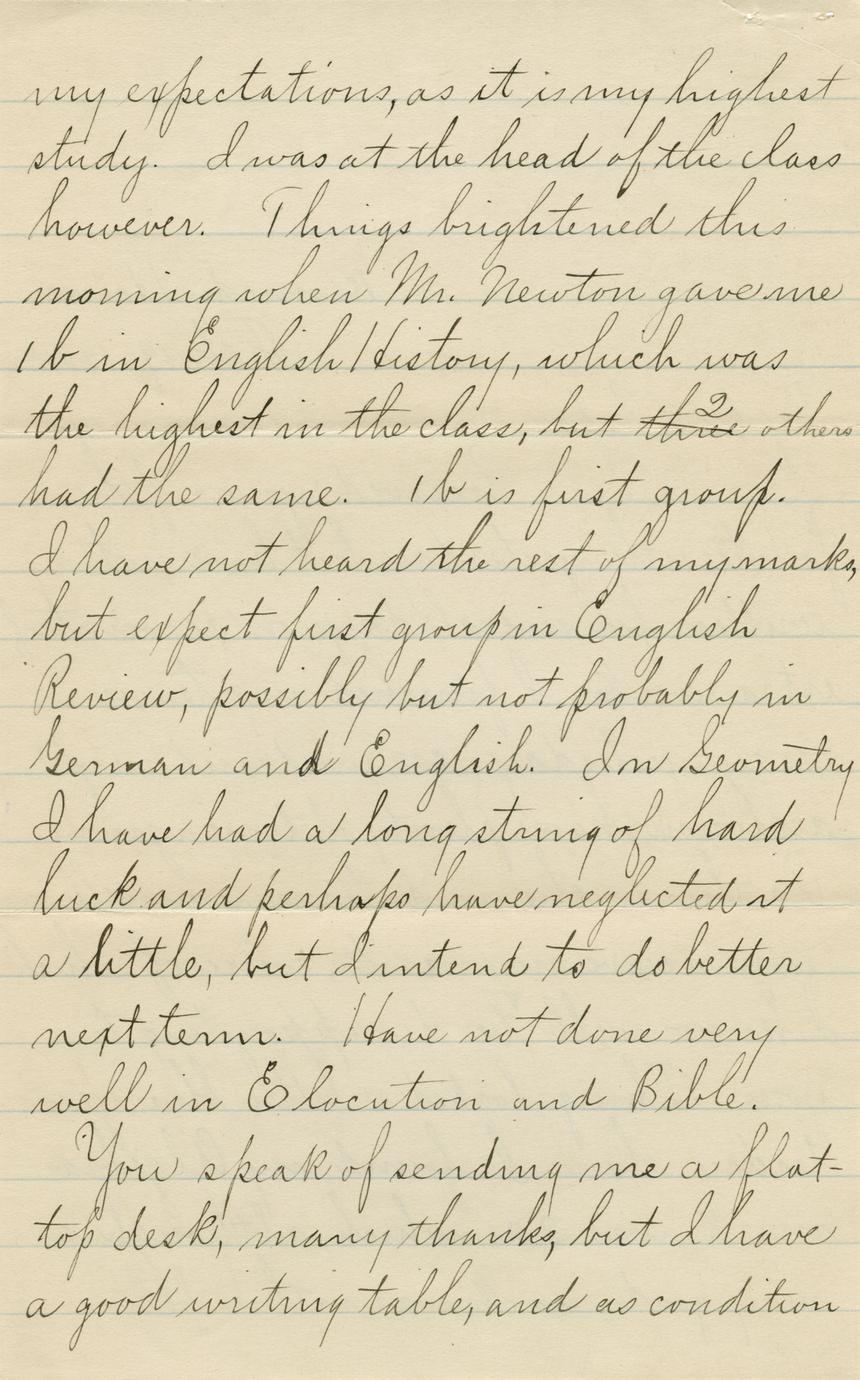 my expectations, as it is my highest
study. I was at the head of the class
however. Things brightened this
morning when Mr. Newton gave me
1 b in English History, which was
the highest in the class, but ~~three~~ 2 others
had the same. 1 b is first group.
I have not heard the rest of my marks,
but expect first group in English
Review, possibly but not probably in
German and English. In Geometry
I have had a long string of hard
luck and perhaps have neglected it
a little, but I intend to do better
next term. Have not done very
well in Elocution and Bible.
You speak of sending me a flat-
top desk, many thanks, but I have
a good writing table, and as condition